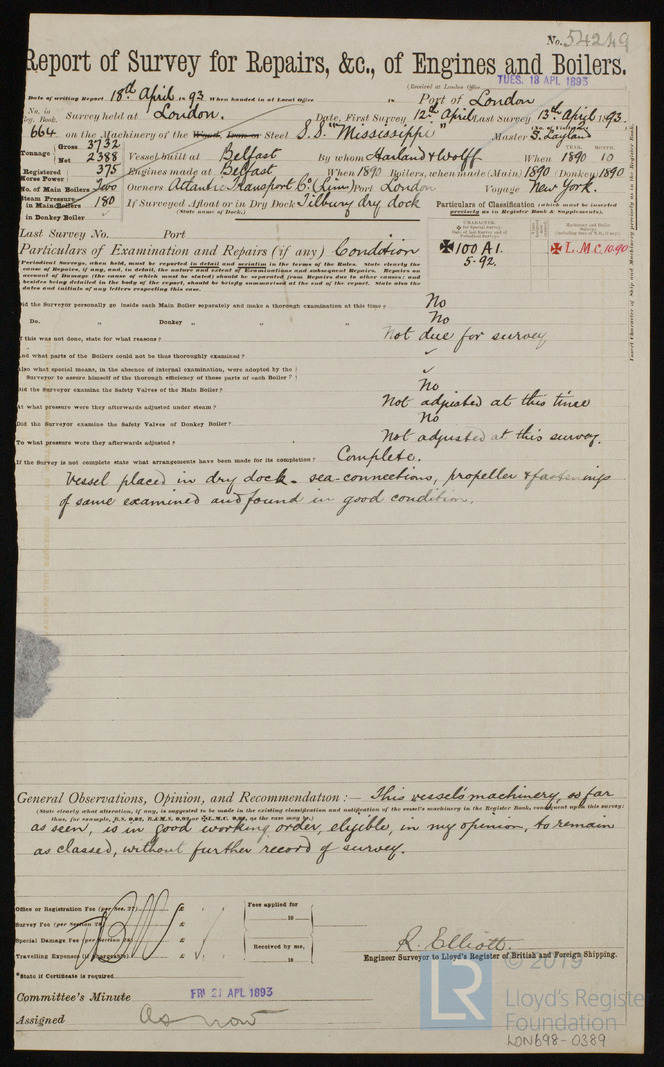 No. 54249
Report of Survey for Repairs, &c., of Engines and Boilers.
(Received at London Office TUES. 18 APL 1893
Date of writing Report 18th April 1893 When handed in at Local Office 18 Port of London
No. in Reg. Book. Survey held at London. Date, First Survey 12th April Last Survey 13th April 1893.
664 on the Machinery of the Wood, Iron or Steel S.S. "Mississippi" Master S. Layland
Tonnage Gross 3732
Net 2388 Vessel built at Belfast By whom Harland & Wolff When YEAR. 1890 MONTH. 10
Registered Horse Power 375 Engines made at Belfast When 1890 Boilers, when made (Main) 1890 (Donkey) 1890
No. of Main Boilers Two Owners Atlantic Transport Co. (Lim) Port London Voyage New York.
Steam Pressure in Main Boilers 180 If Surveyed Afloat or in Dry Dock Tilbury dry dock
(State name of Dock.)
in Donkey Boiler ✓
Particulars of Classification (which must be inserted precisely as in Register Book & Supplements).
Last Survey No. Port
CHARACTER.
Machinery and Boiler Surveys
Particulars of Examination and Repairs (if any) Condition
✠100 A1. 5.92.
✠ L.M.C. 10.90
(Periodical Surveys, when held, must be reported in detail and seriatim in the terms of the Rules. State clearly the
cause of Repairs, if any, and, in detail, the nature and extent of Examinations and subsequent Repairs. Repairs on
account of Damage (the cause of which must be stated) should be separated from Repairs due to other causes; and
besides being detailed in the body of the report, should be briefly summarised at the end of the report. State also the
dates and initials of any letters respecting this case.)
Insert Character of Ship and Machinery precisely as in the Register Book.
Did the Surveyor personally go inside each Main Boiler separately and make a thorough examination at this time? No
Do. " Donkey " " " No
If this was not done, state for what reasons? Not due for survey
And what parts of the Boilers could not be thus thoroughly examined? ✓
Also what special means, in the absence of internal examination, were adopted by the
Surveyor to assure himself of the thorough efficiency of those parts of each Boiler? ✓
Did the Surveyor examine the Safety Valves of the Main Boiler? No
At what pressure were they afterwards adjusted under steam? Not adjusted at this time
Did the Surveyor examine the Safety Valves of Donkey Boiler? No
To what pressure were they afterwards adjusted? Not adjusted at this survey.
If the Survey is not complete state what arrangements have been made for its completion? Complete.
Vessel placed in dry dock - sea-connections, propeller & fastenings
of same examined and found in good condition.
General Observations, Opinion, and Recommendation:— This vessel's machinery, so far
(State clearly what alteration, if any, is suggested to be made in the existing classification and notification of the vessel's machinery in the Register Book, consequent upon this survey:
thus, for example, B.S. 9,92, B.&M.S. 9,92, or ✠L.M.C. 9,92, as the case may be.)
as seen, is in good working order, eligible, in my opinion, to remain
as classed, without further record of survey.
Office or Registration Fee (per Sec. 27) £ : :
Survey Fee (per Section 28) £ : :
Special Damage Fee (per Section 28) £
Travelling Expenses (if chargeable) £
Fees applied for
18
Received by me,
18
*State if Certificate is required
R. Elliott.
Engineer Surveyor to Lloyd's Register of British and Foreign Shipping.
Committee's Minute FRI 21 APL 1893
Assigned As now
© 2019
LR
Lloyd's Register
Foundation
LON698-0389